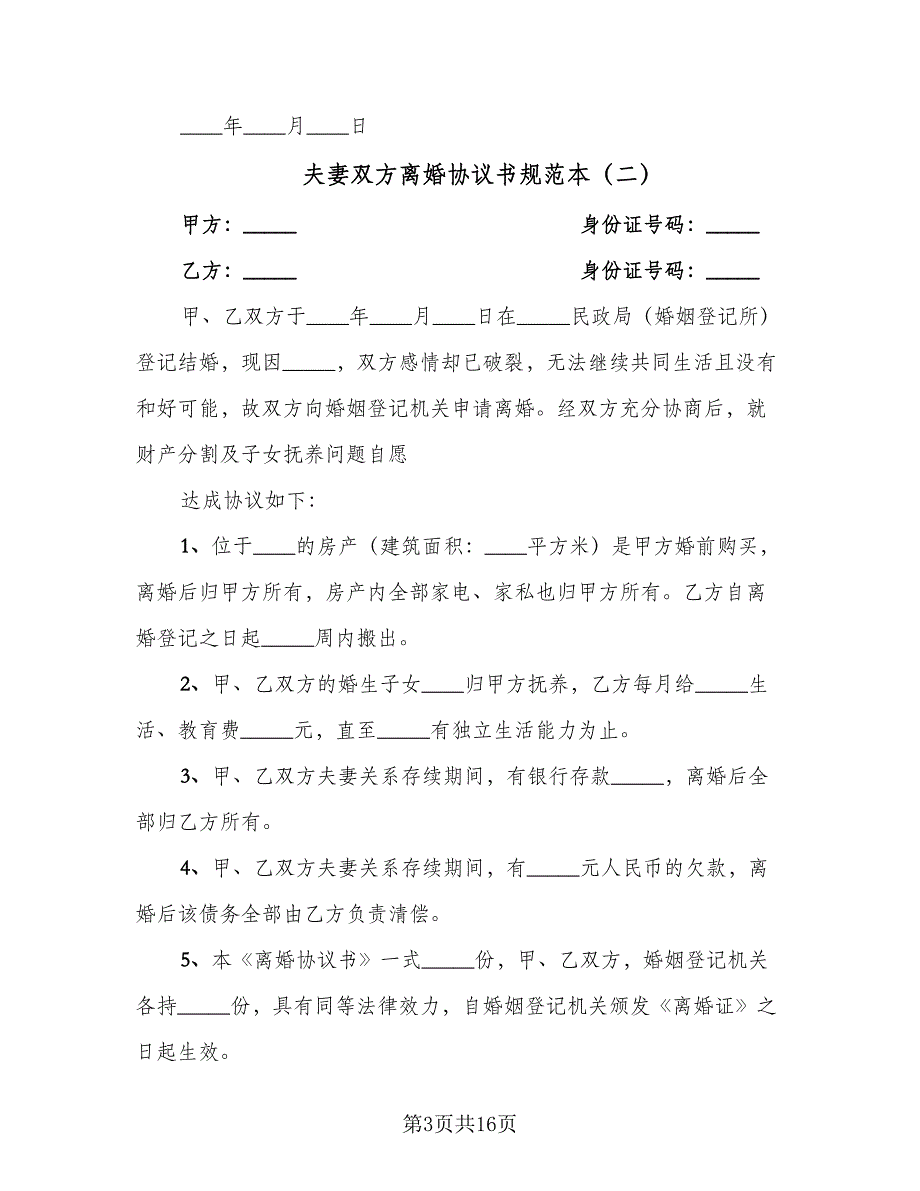 ____年____月____日
夫妻双方离婚协议书规范本（二）
甲方：_____ 身份证号码：_____
乙方：_____ 身份证号码：_____
甲、乙双方于____年____月____日在_____民政局（婚姻登记所）
登记结婚，现因_____，双方感情却已破裂，无法继续共同生活且没有
和好可能，故双方向婚姻登记机关申请离婚。经双方充分协商后，就
财产分割及子女抚养问题自愿
达成协议如下：
1、位于____的房产（建筑面积：____平方米）是甲方婚前购买，
离婚后归甲方所有，房产内全部家电、家私也归甲方所有。乙方自离
婚登记之日起_____周内搬出。
2、甲、乙双方的婚生子女____归甲方抚养，乙方每月给_____生
活、教育费_____元，直至_____有独立生活能力为止。
3、甲、乙双方夫妻关系存续期间，有银行存款_____，离婚后全
部归乙方所有。
4、甲、乙双方夫妻关系存续期间，有_____元人民币的欠款，离
婚后该债务全部由乙方负责清偿。
5、本《离婚协议书》一式_____份，甲、乙双方，婚姻登记机关
各持_____份，具有同等法律效力，自婚姻登记机关颁发《离婚证》之
日起生效。
第3页共16页